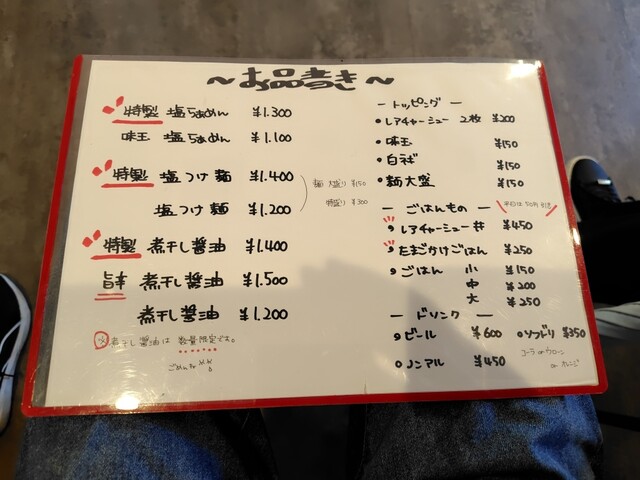 〜お品書き〜
特製 塩らぁめん ¥1.300
味玉 塩らぁめん ¥1.100
特製 塩つけ麺 ¥1.400
麺大盛り ¥150
特盛り ¥300
塩つけ麺 ¥1.200
特製 煮干し醤油 ¥1.400
旨辛 煮干し醤油 ¥1.500
煮干し醤油 ¥1.200
煮干し醤油は 数量限定です。
ごめんなさい
ー トッピング ー
・レアチャーシュー 2枚 ¥200
・味玉 ¥150
・白ネギ ¥150
・麺大盛 ¥150
ー ごはんもの ー
平日は50円引き
・レアチャーシュー丼 ¥450
・たまごかけごはん ¥250
・ごはん 小 ¥150
中 ¥200
大 ¥250
ー ドリンク ー
・ビール ¥600
・ソフドリ ¥350
コーラ or ウーロン
or オレンジ
・ノンアル ¥450